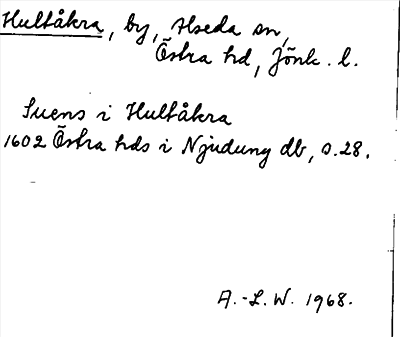 Hultåkra, by, Hseda sn,
Östra hd, Jönk. l.
Suens i Hultåkra
1602 Östra hds i Njudung db, s.28.
A.-L.W. 1968.